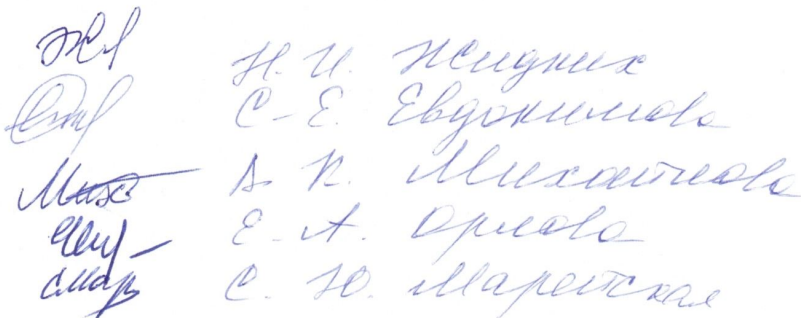 Н. И. Жидких
С. Е. Евдокимова
А. К. Михайлова
Е. А. Орлова
С. Ю. Марейская